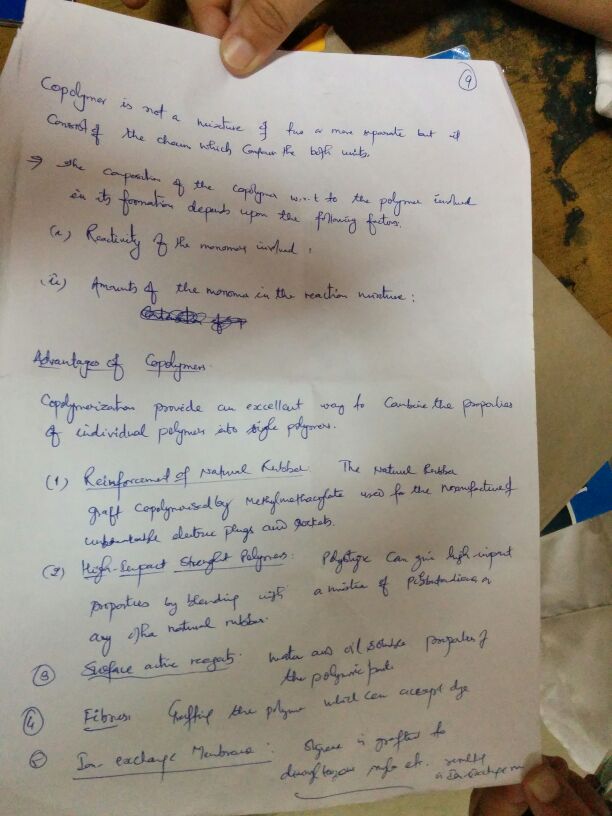 9
Copolymer is not a mixture of two or more separate but it
Consist of the chain which Contain the both units.
⇒ The composition of the copolymer w.r.t to the polymer involved
in its formation depends upon the following factors.
(i) Reactivity of the monomer involved :
(ii) Amounts of the monomer in the reaction mixture :
Advantages of Copolymers
Copolymerization provide an excellent way to Combine the properties
of individual polymers into single polymers.
(1) Reinforcement of Natural Rubber. The Natural Rubber
graft Copolymerised by Methylmethacrylate used for the manufacture of
unbreakable electric plugs and sockets.
(2) High-Impact Strenght Polymers : Polystyrene Can give high impact
properties by blending with a mixture of Polybutadiene or
any other natural rubber.
(3) Surface active reagents. Water and oil soluble properties of
the polymeric
(4) Fibres Grafting the polymer which can accept dye
(5) Ion-exchange Membrane : Styrene is grafted to
etc.